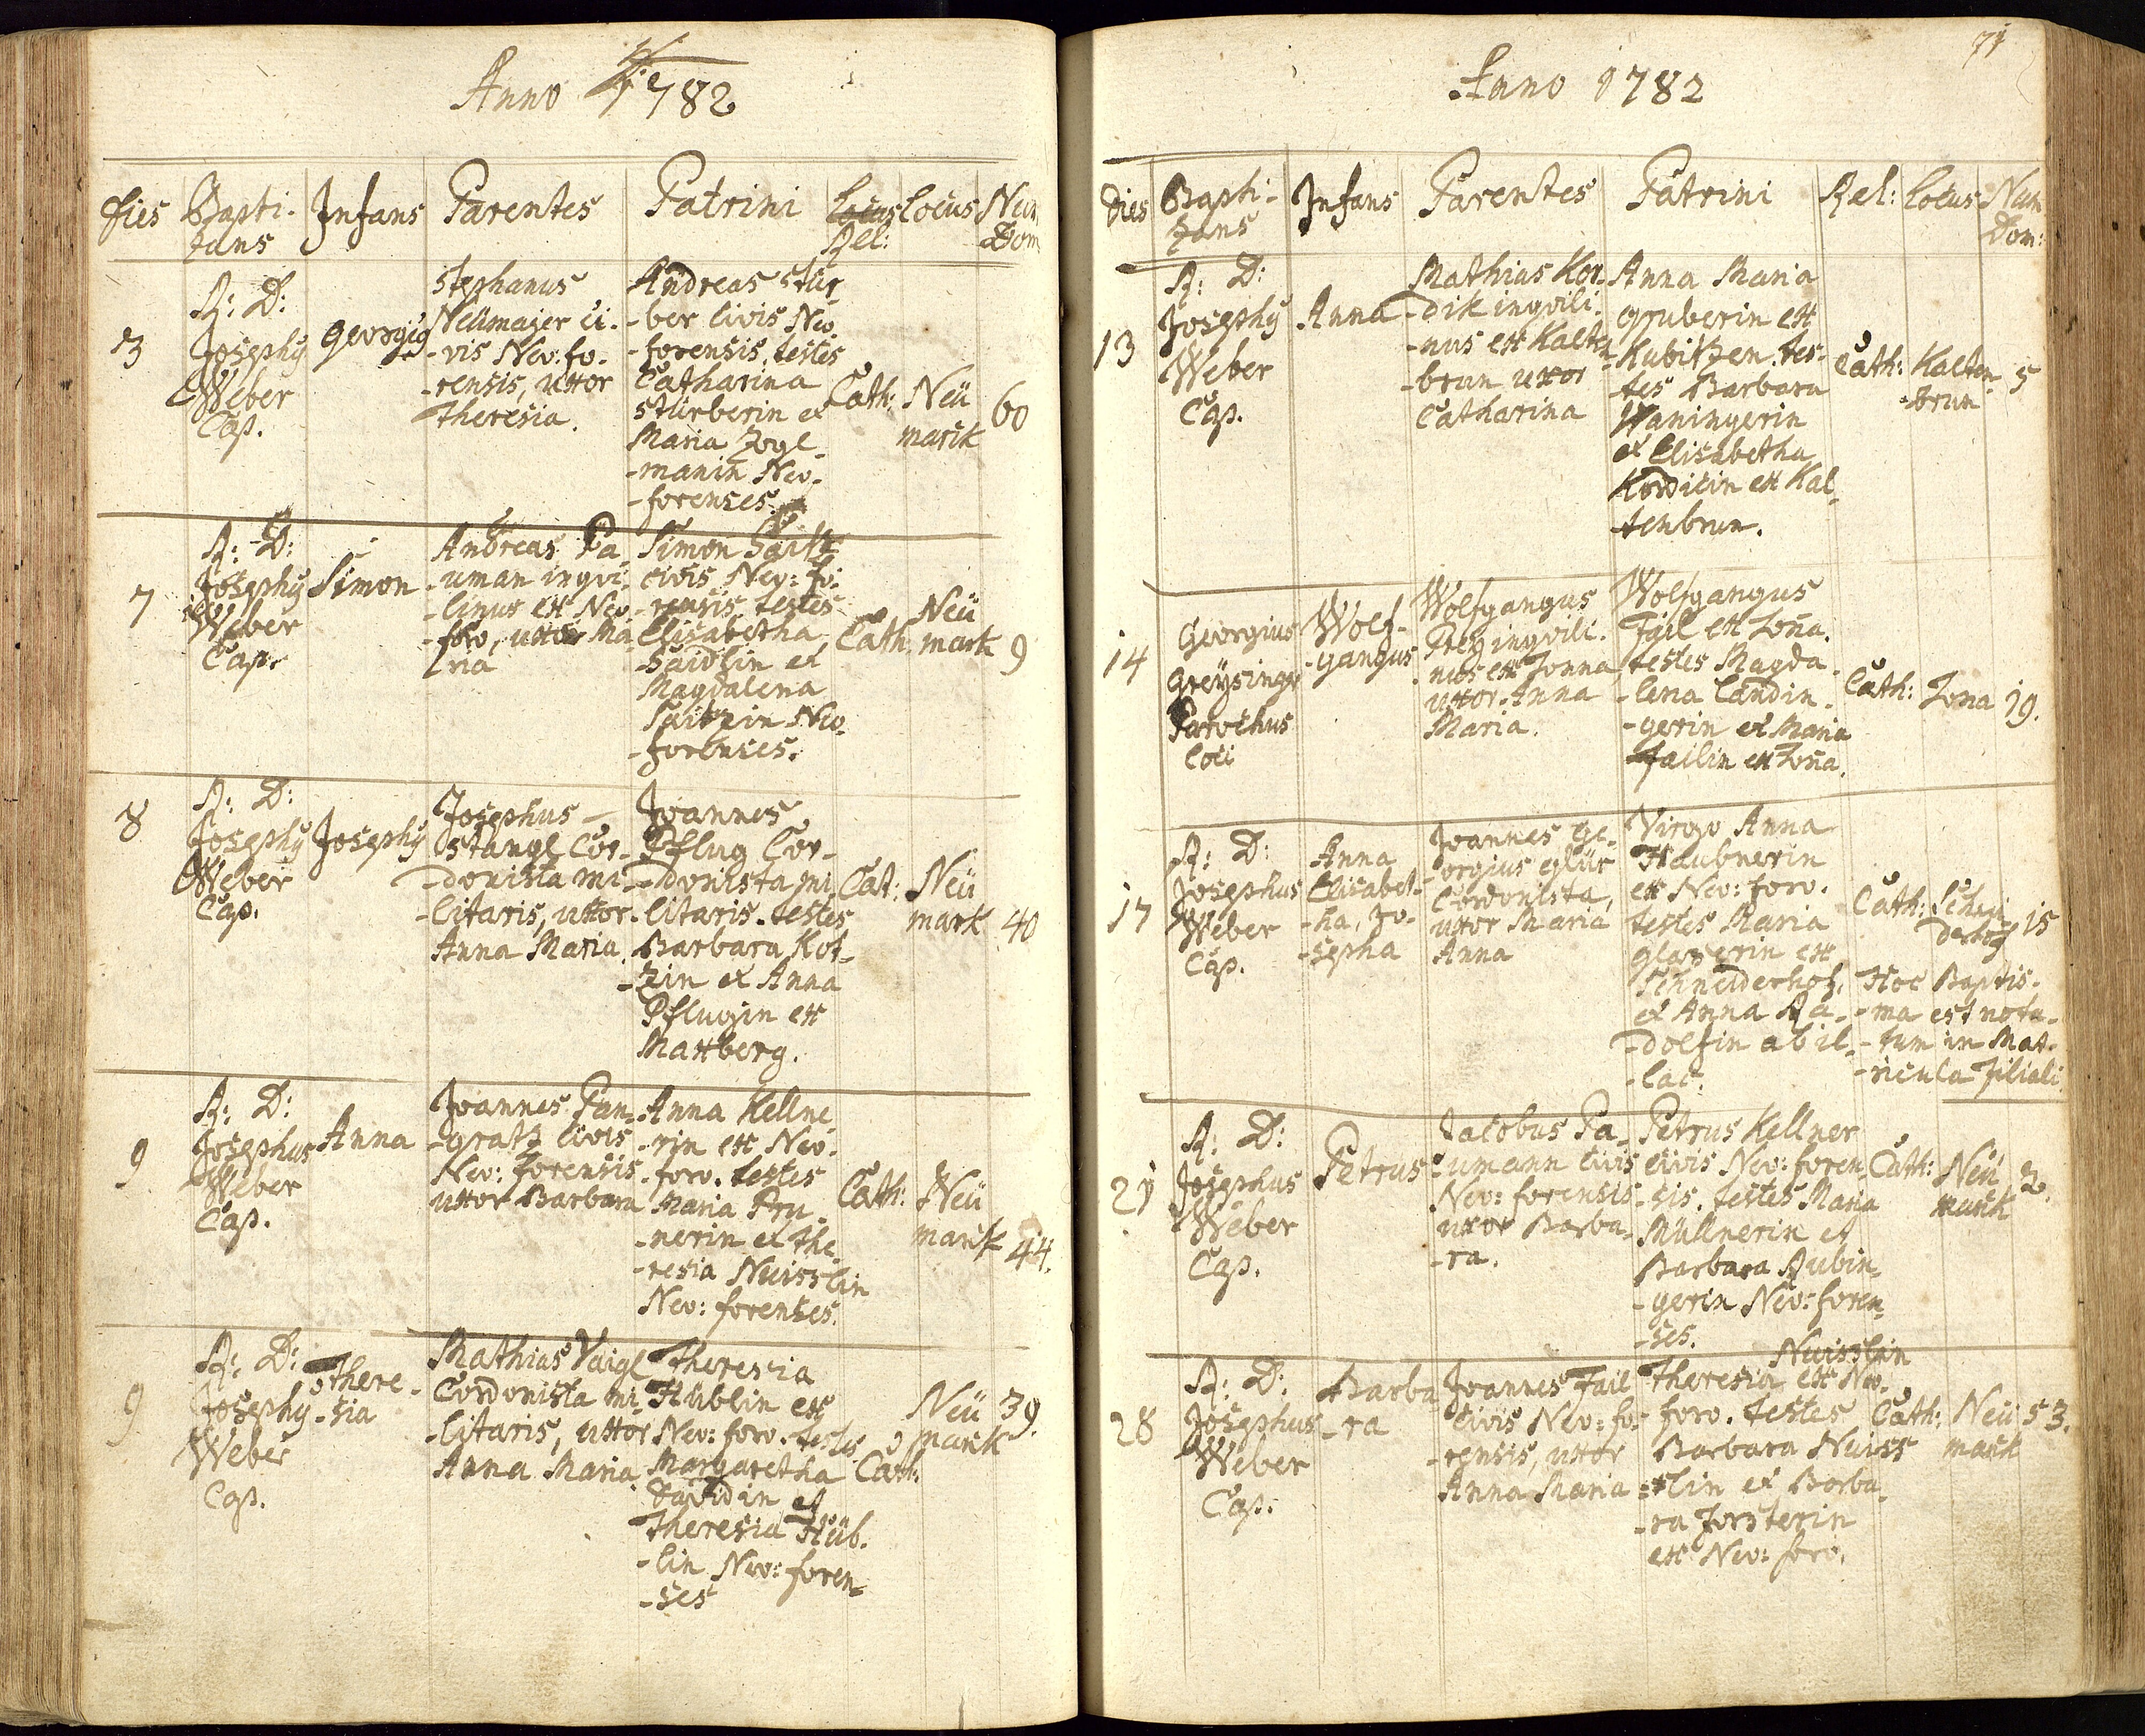 Anno 1782
Dies Bapti- Infans Parentes Patrini Locus Locus Num
zans Rel: Dom
3
R: D:
Josephg
Weber
Cap.
Georgig
Stephanus
Neümajer ci-
-vis Neo: fo-
-rensis, uxor
Theresia.
Andreas Stür
-ber Civis Neo
-forensis, testes
Catharina
Stürberin et
Maria Zogl
-manin Neo-
-forenses.
Cath:
Neü
mark
60
7
R: D:
Josephg
Weber
Cap.
Simon
Andreas Pa
-uman inqvi
-linus ex Neo
-foro, uxor Ma
ria
Simon
civis Neo: fo:
-rensis. testes
Elisabetha
Saidlin et
Magdalena
Neo
-forenses.
Cath:
Neü
mark
9
8
R: D:
Josephg
Weber
Cap.
Josephg
Josephus
Stangl Cor-
-donista mi-
-litaris, uxor
Anna Maria.
Joannes
Pflug Cor-
-donista mi
-litaris. testes
Barbara Kot-
-zin et Anna
Pflugin ex
Maxberg.
Cat:
Neü
mark
40
9
R: D:
Josephus
Weber
Cap.
Anna
Joannes Pan-
-gratz Civis
Neo: forensis
uxor Barbara
Anna Kellne
-rin ex Neo-
-foro. testes
Maria Pru
-nerin et The
-resia Nuisslin
Neo: forenses.
Cath:
Neü
mark
44.
9
R: D:
Josephg
Weber
Cap.
There-
-sia
Mathias Vaigl
Cordonista mi-
-litaris, uxor
Anna Maria
Theresia
Hüblin ex
Neo: foro. testes
Margaretha
Davidin et
Theresia Hüb-
-lin Neo: foren-
-ses
Cath:
Neü
mark
39.
71
Anno 1782
Dies Bapti- Infans Parentes Patrini Rel: Locus Num
zans Dom:
13
R: D:
Josephg
Weber
Cap.
Anna
Mathias Kor-
-dik inqvili-
-nus ex Kalten
-brun uxor
Catharina
Anna Maria
Gruberin ex
Kubitzen. tes-
-tes Barbara
Waningerin
et Elisabetha
Kordikin ex Kal
-tenbrun.
Cath:
Kalten
-brun
5
14
Georgius
Greÿsinger
Parochus
Loci
Wolf-
-gangus
Wolfgangus
inqvili-
-nus ex Zonna
uxor Anna
Maria.
Wolfgangus
Fail ex Zoña.
testes Magda
-lena Landin-
-gerin et Maria
Failin ex Zoña.
Cath:
Zona
19.
17
R: D:
Josephus
Weber
Cap.
Anna
Elisabet-
-ha, Jo-
-sepha
Joannes Ge-
-orgius Glür
Cordonista,
uxor Maria
Anna
Virgo Anna
Haubnerin
ex Neo: foro.
testes Maria
Glaserin ex
Schneiderhof,
et Anna Ra-
-dolfin ab il-
-lac.
Cath:
15
Hoc Baptis-
-ma est nota-
-tum in Mat-
-ricula filiali.
21
R: D:
Josephus
Weber
Cap.
Petrus
Jacobus Pa-
-umann Civis
Neo: forensis
uxor Barba-
-ra.
Petrus Kellner
civis Neo: foren-
-sis. testes Maria
Müllnerin et
Barbara Rubin-
-gerin Neo: foren-
-ses.
Cath:
Neü
mark
2.
28
R: D:
Josephus
Weber
Cap.
Barba
-ra
Joannes Fail
Civis Neo: fo-
-rensis, uxor
Anna Maria
Nuisslin
Theresia ex Neo-
foro. testes
Barbara Nuiss
-lin et Barba-
-ra Forsterin
ex Neo: foro.
Cath:
Neü
mark
53.